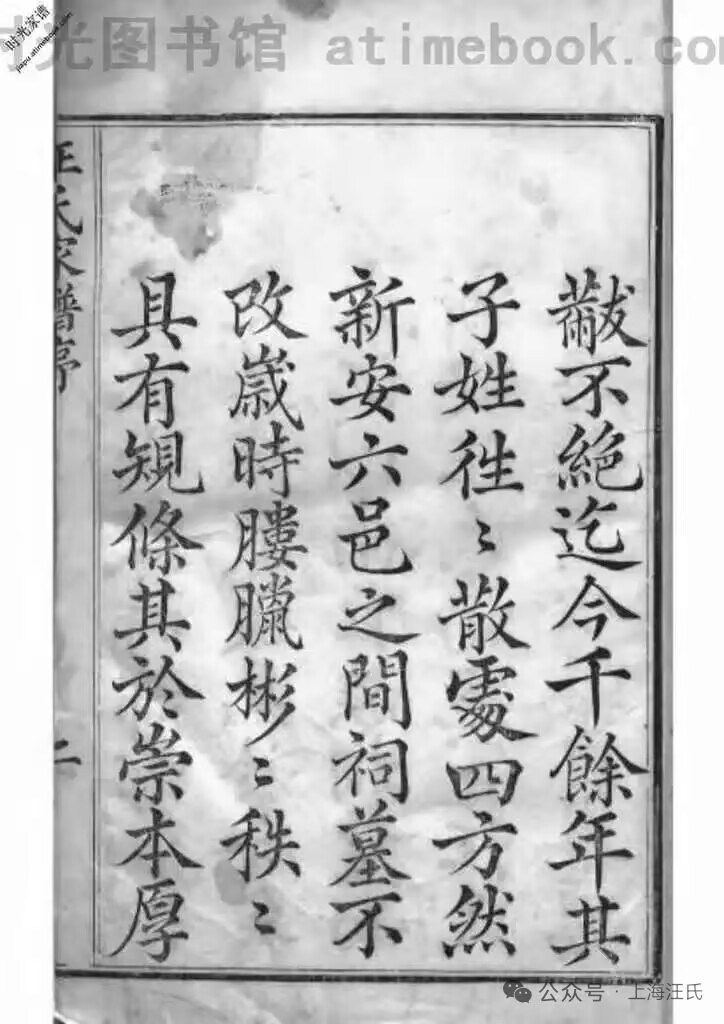 时光家谱
jiapu.atimebook.com
时光图书馆 atimebook.com
黻不絶迄今千餘年其
子姓徃〻散處四方然
新安六邑之間祠墓不
改嵗時膢臘彬〻秩〻
具有䂓條其於崇本厚
汪氏家譜序
二
公众号·上海汪氏